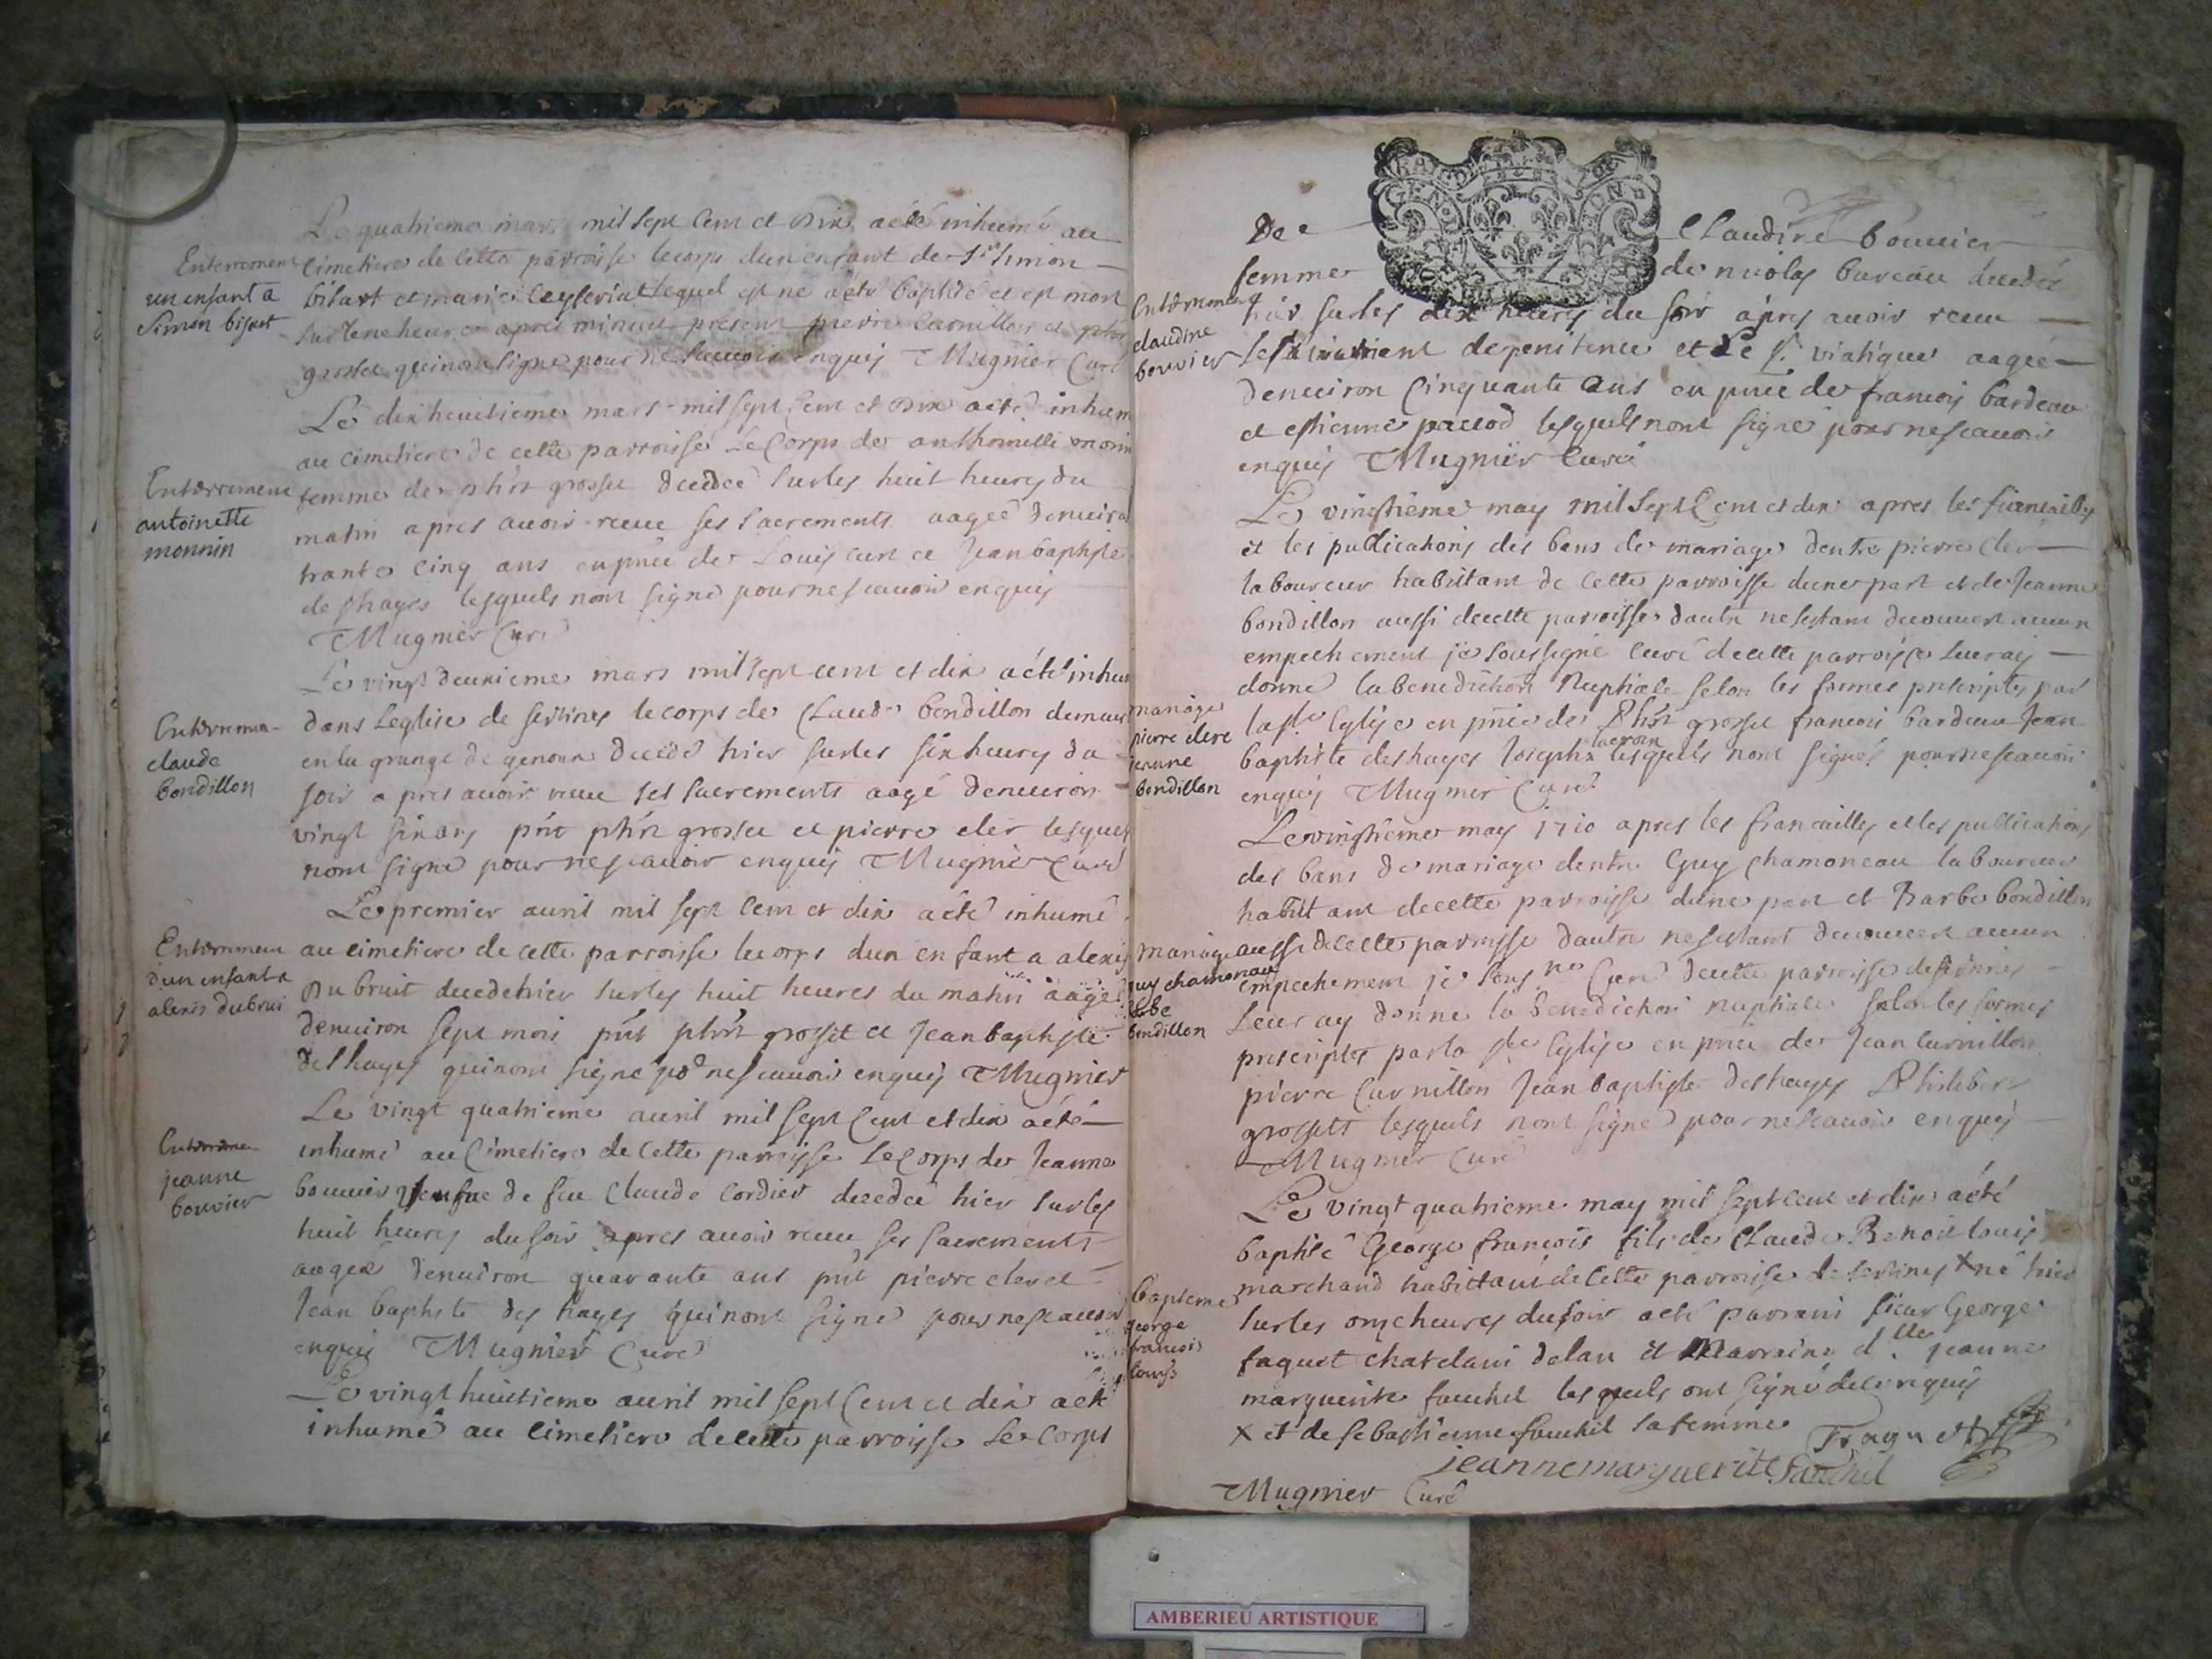 Le quatrieme mars mil sept cent et dix a été inhumé au
Enterrement
un enfant a
Simon bisart
cimetiere de cette parroisse le corps dun enfant de Sr Simon
et marie lequel est né a été baptisé et est mort
sur lune heure apres minuit present pierre curnillon et phrt
grosset qui nont signé pour ne scauoir enquis Mugnier Curé
Le dix heuitieme mars mil sept cent et dix a été inhum
au cimetiere de cette parroisse Le Corps de anthoinette monin
Enterrement
antoinette
monnin
femme de phrt grosset decedeé sur les huit heures du
matin apres auoir receu ses sacrements aageé denuiron
trante cinq ans en pnce de Louis cur et Jean baptiste
deshayes lesquels nont signé pour ne scauoir enquis
Mugnier Curé
Le vingt deuxieme mars mil sept cent et dix a été inhum
Enterrement
claude
bondillon
dans Leglise de seillines le corps de Claude bondillon demeur
en la grange de genoux decedé hier sur les six heures du
soir apres auoir receu ses sacrements aagé denuiron
vingt six ans pnt phrt grosset et pierre cler lesquels
nont signé pour ne scauoir enquis Mugnier Curé
Le premier auril mil sept cent et dix a été inhumé
Enterrement
dun enfant a
alexis dubruit
au cimetiere de cette parroisse le corps dun enfant a alexis
Du bruit decedé hier sur les huit heures du matin aagé
denuiron sept mois pnt phrt grosset et Jean baptiste
deshayes qui nont signé pr ne scauoir enquis Mugnier
Le vingt quatrieme auril mil sept Cent et dix a été
Enterrement
jeanne
bouvier
inhumé au Cimetiere de cette parroisse Le Corps de Jeanne
bouuier veufue de feu Claude Cordier decedeé hier sur les
huit heures du soir apres auoir receu ses sacrements
aageé denuiron quarante ans pnt pierre cler et
Jean baptiste des hayes qui nont signé pour ne scauoir
enquis Mugnier Curé
Le vingt huitieme auril mil sept Cent et dix a eté
inhumé au cimetiere de cette parroisse Le Corps
De Claudine bouuier
femme de nicolas bureau decedeé
Enterrement
claudine
bouvier
hier sur les dix heures du soir apres auoir receu
le sacrement de penitence et Le St viatique aageé
denuiron Cinquante Ans en pnce de francois bardeau
et estienne paccod lesquels nont signé pour ne scauoir
enquis Mugnier Curé
Le vingtième may mil sept Cent et dix apres les fiancailles
et les publications des bans de mariage dentre pierre cler
laboureur habitant de cette parroisse dune part et de Jeanne
bondillon aussi de cette parroisse dautre ne sestant decouuert aucun
empechement je soussigné curé de cette parroisse leur ay
donné la benediction Nuptiale selon les formes prescriptes par
mariage
pierre clere
jeanne
bondillon
la Ste Eglise en pnce de Phrt grosset francois bardeau Jean
baptiste deshayes Joseph lacroix lesquels nont signés pour ne scauoir
enquis Mugnier Curé
Le vingtième may 1710 apres les fiancailles et les publications
des bans de mariage dentre Guy Chamoneau laboureur
habitant de cette parroisse dune part et Barbe bondillon
mariage
guy chamonau
barbe
bondillon
aussi de cette parroisse dautre ne sestant decouuert aucun
empechement je sousné Curé de cette parroisse de seillines
Leur ay donné la benediction nuptiale selon les formes
prescriptes par la Ste Eglise en pnce de Jean Curnillon
pierre Curnillon Jean baptiste deshayes Philebert
grosset lesquels nont signé pour ne scauoir enquis
Mugnier Curé
Le vingt quatrieme may mil sept cent et dix a été
baptisé George francois fils de Claude Benoit louis
Bapteme
george
francois
louis
marchand habittant de cette parroisse de seillines x né hier
sur les onze heures du soir a eté parrain sieur George
faquet chatelain delau et Marraine dlle jeanne
marguerite fauchil lesquels ont signé de ce enquis
x et de sebastienne fauchil sa femme
jeanne marguerite fauchil
Mugnier Curé
AMBERIEU ARTISTIQUE